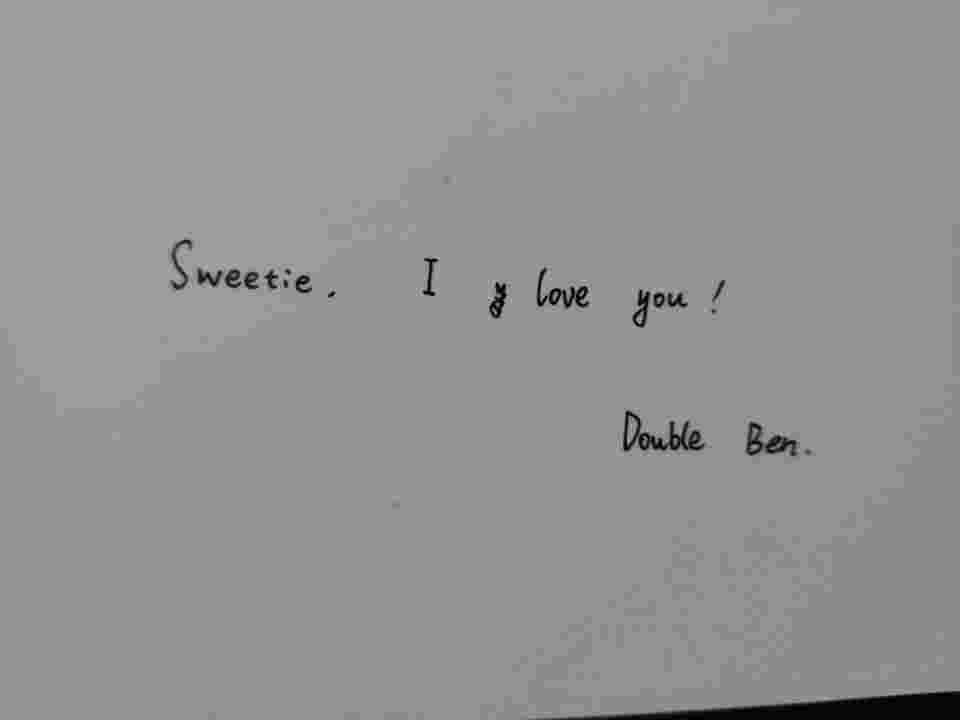 Sweetie. I love you!
Double Ben.